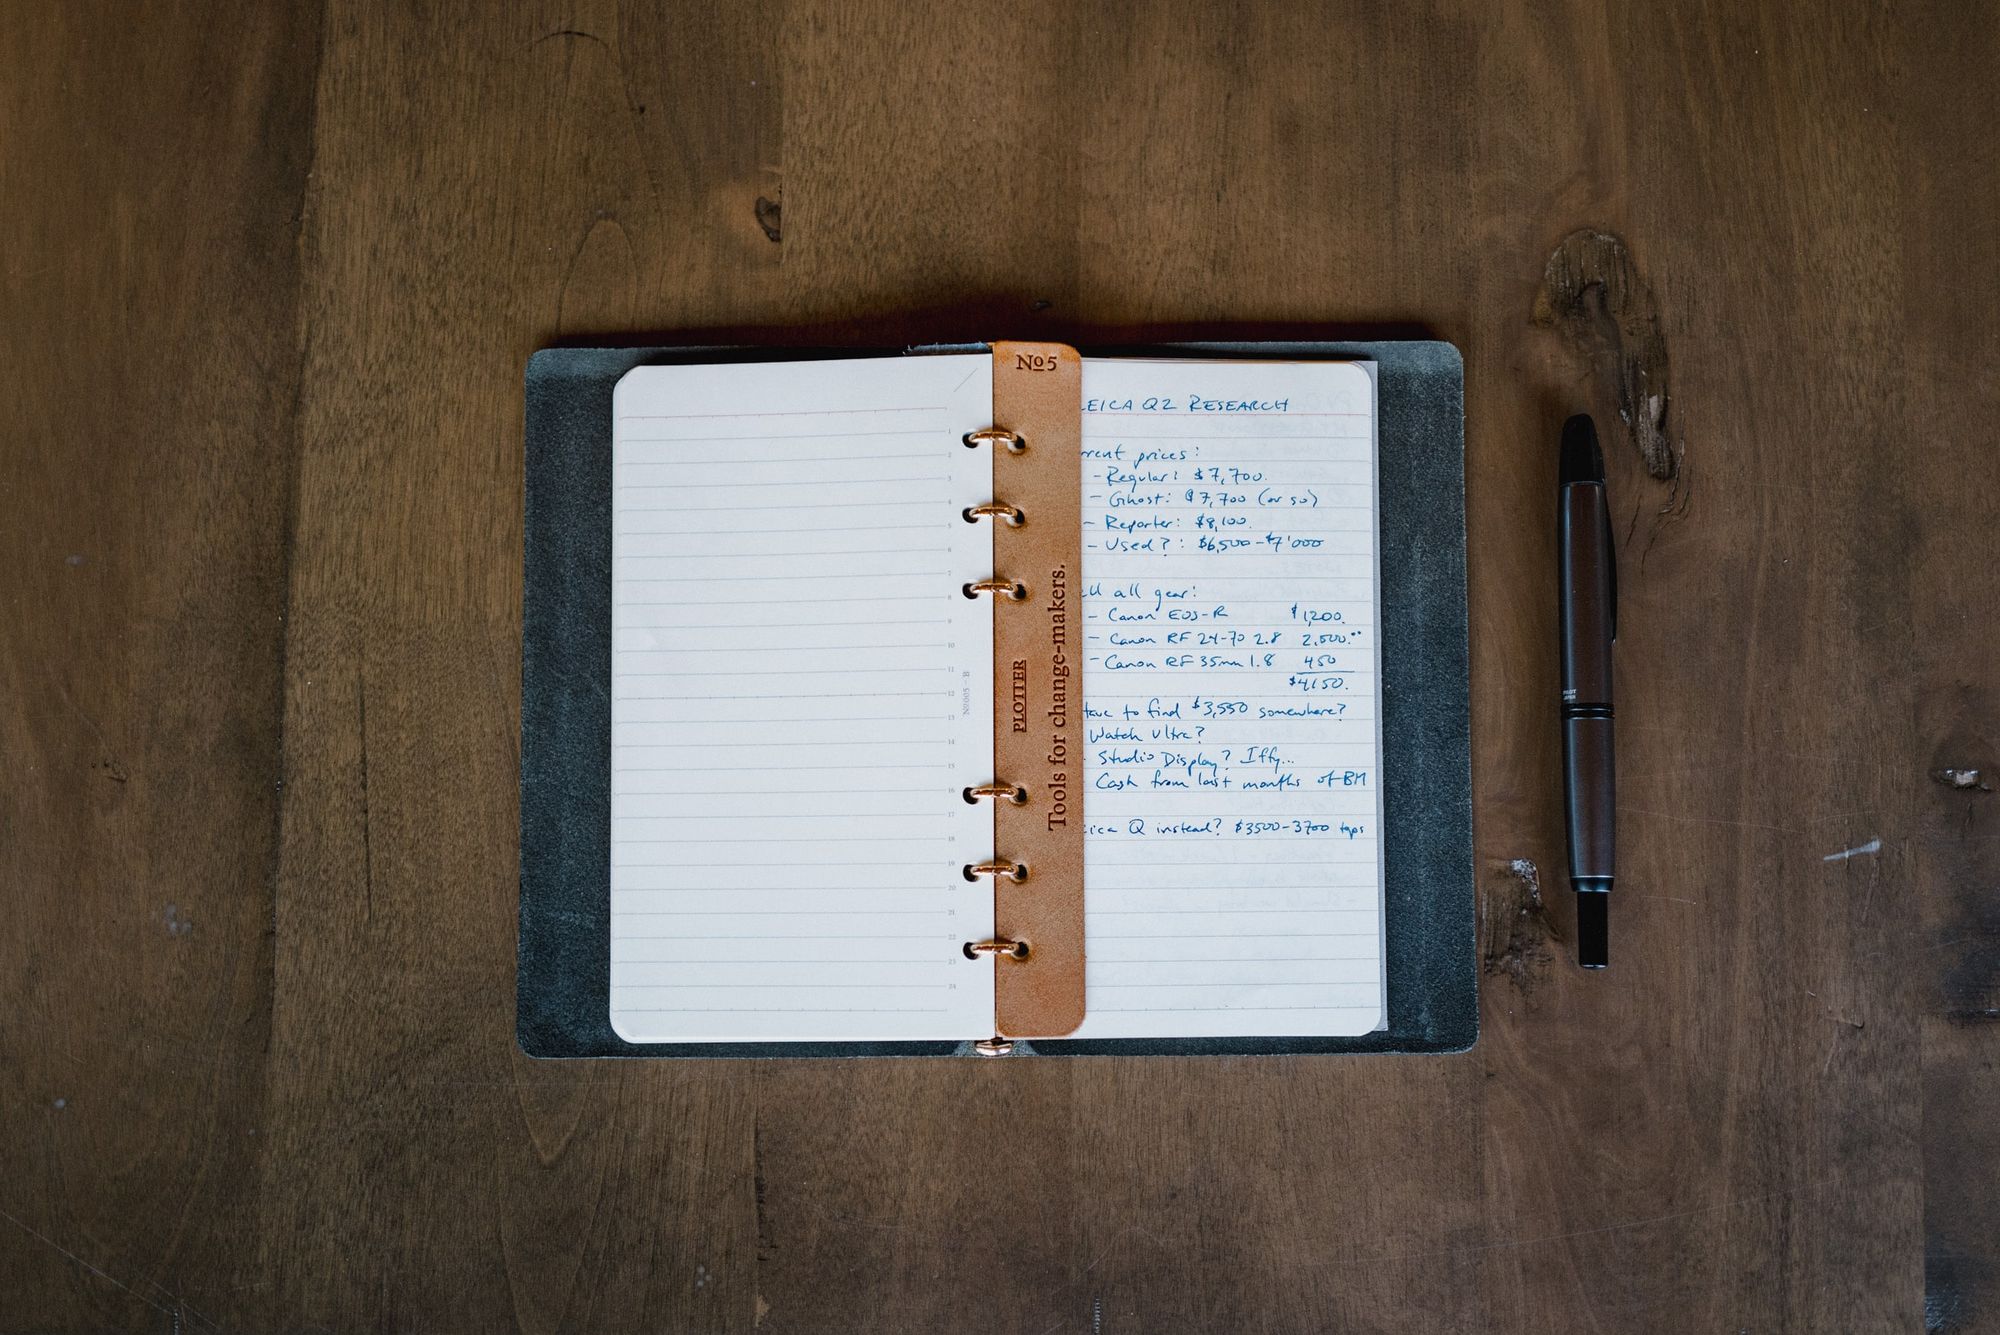 No 5
PLOTTER
Tools for change-makers.
EICA Q2 RESEARCH
rrent prices:
- Regular: $7,700.
- Ghost: $7,700 (or so)
- Reporter: $8,100.
- Used?: $6,500-$7'000
ll all gear:
- Canon EOS-R $1,200.
- Canon RF 24-70 2.8 2,500.**
- Canon RF 35mm 1.8 450
$4150.
Have to find $3,550 somewhere?
Watch Ultra?
Studio Display? Iffy...
Cash from last months of BM
eica Q instead? $3500-3700 tops
1
2
3
4
5
6
7
8
9
10
11
12
13
14
15
16
17
18
19
20
21
22
23
24
PILOT
JAPAN